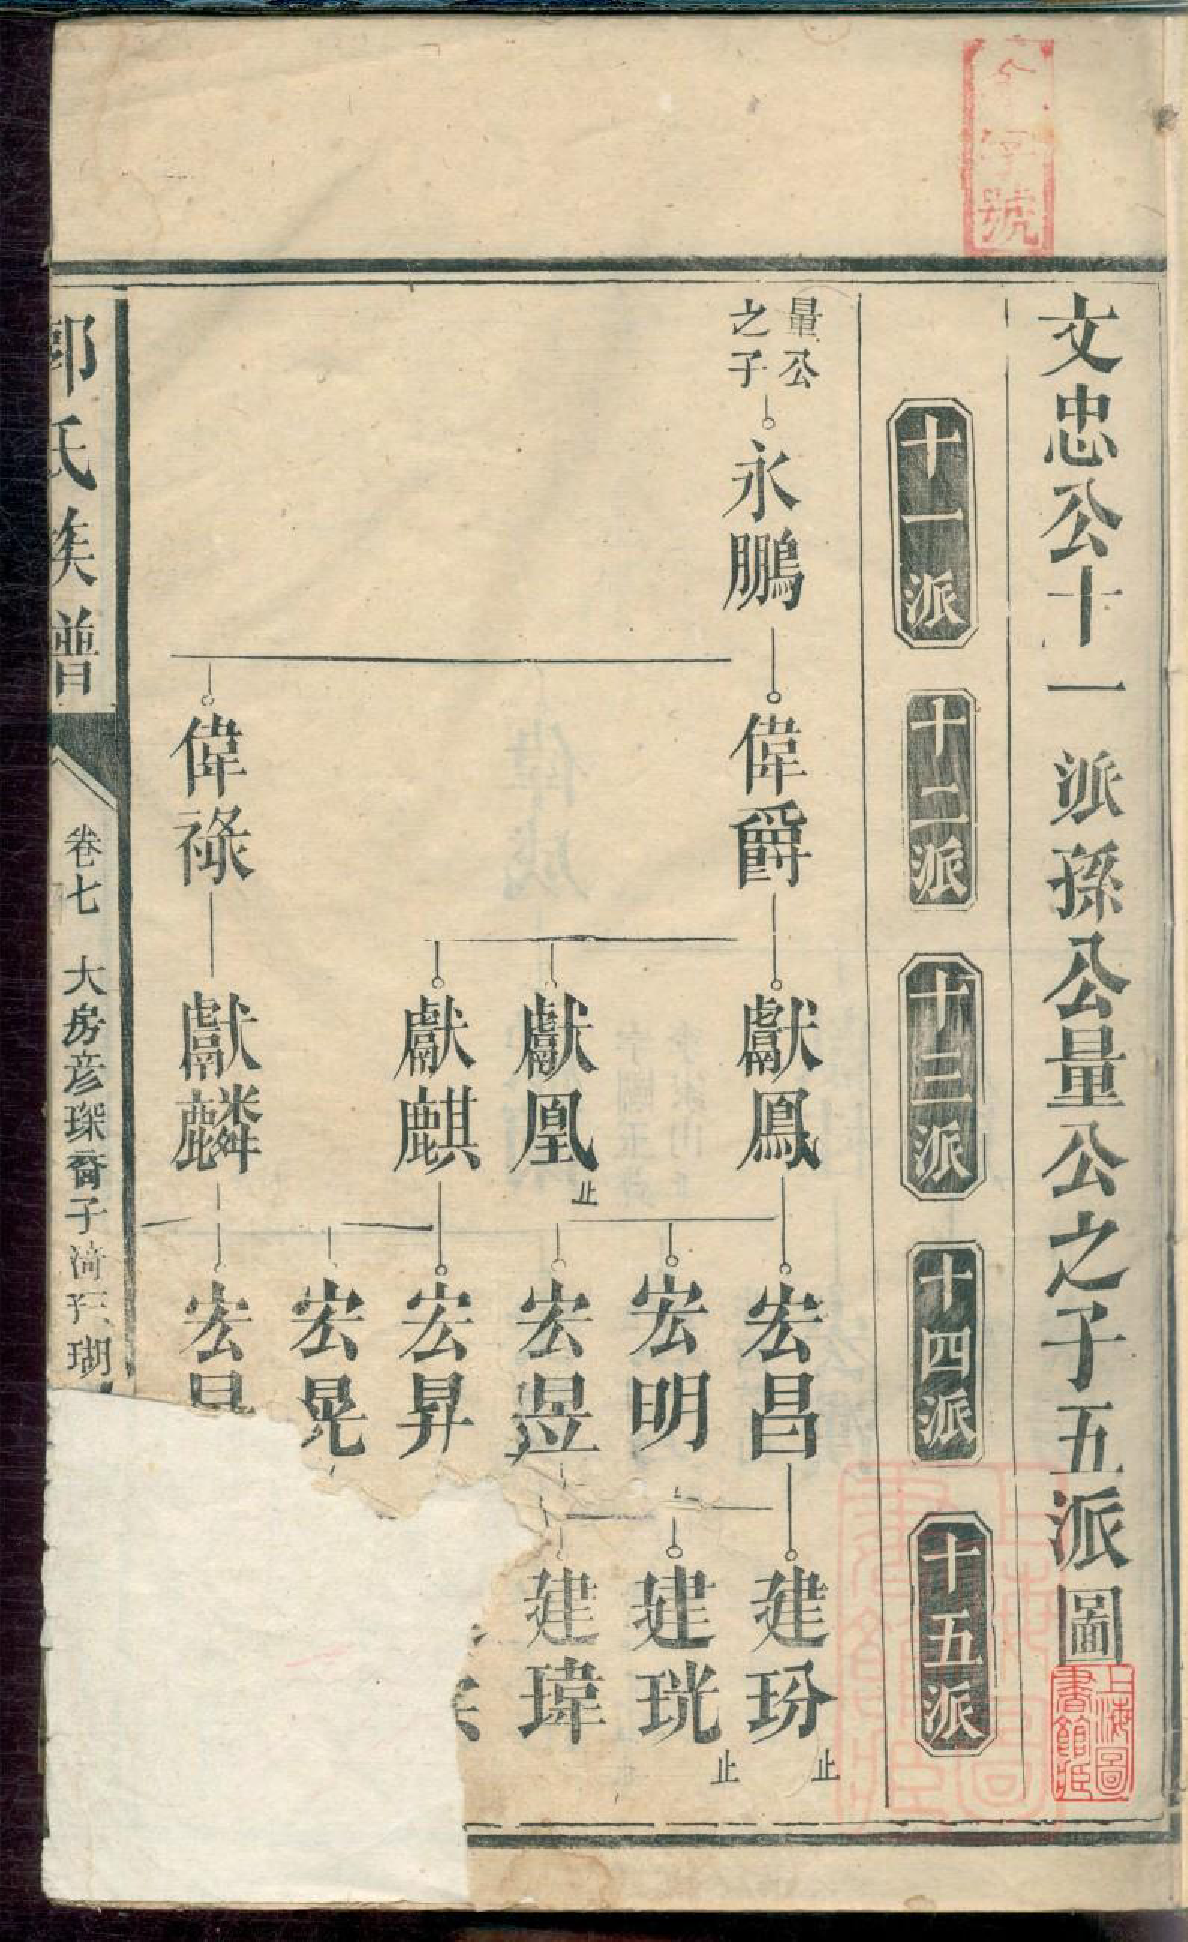 字號
文忠公十一派孫公量公之子五派圖
上海圖書館藏
十一派
十二派
十三派
十四派
十五派
量公之子
永鵬
偉爵
偉祿
獻鳳
獻凰 止
獻麒
獻麟
宏昌
宏明
宏昱
宏昇
宏晃
宏
建玢 止
建珖 止
建瑋
郭氏族譜
卷七 大房彥琛裔子漪
瑚